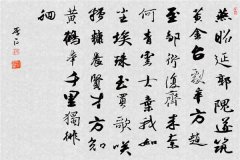 燕昭延郭隗遂築
黄金台劇辛方趙
至鄒衍復齊來奈
何青雲士棄我如
塵埃珠玉買歌笑
糟糠養賢才方知
黄鶴舉千里獨徘
徊